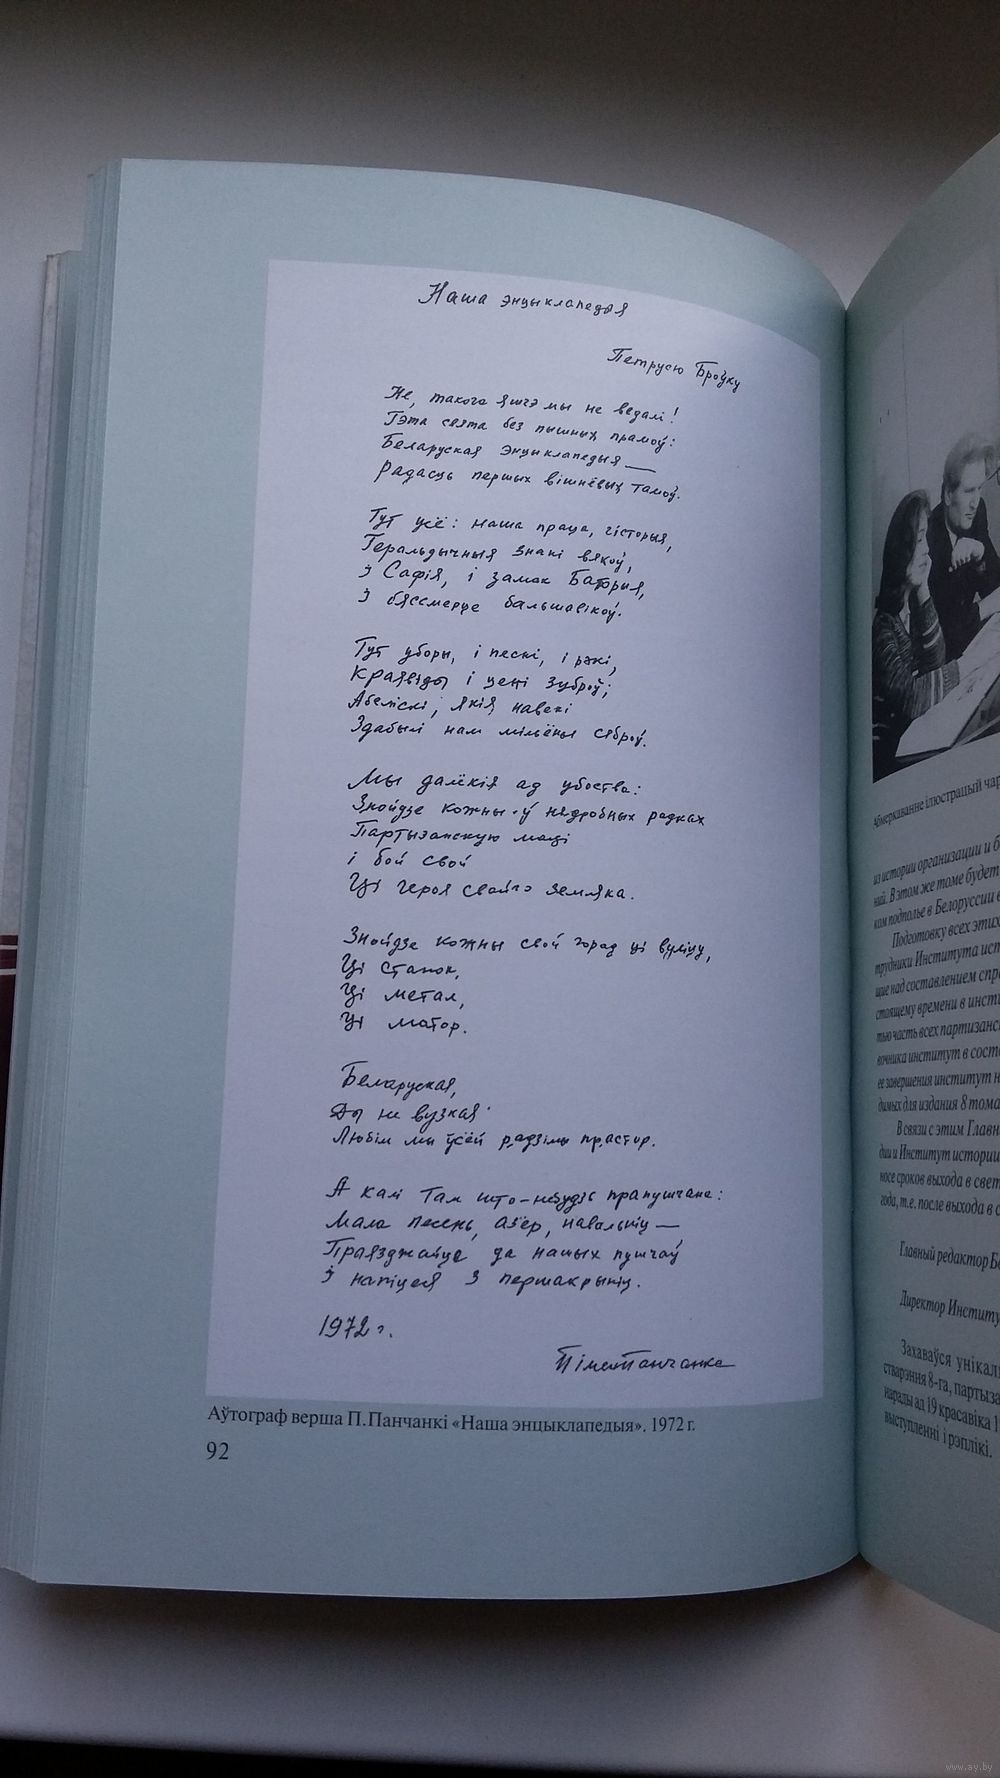 Наша энцыклапедыя
Петрусю Броўку
Не, такога яшчэ мы не ведалі!
Гэта свята без пышных прамоў:
Беларуская энцыклапедыя —
Радасць першых вішнёвых тамоў.
Тут усё: наша праца, гісторыя,
Геральдычныя знакі вякоў,
І Сафія, і замак Баторыя,
І бяссмерце бальшавікоў.
Тут уборы, і песні, і рэкі,
Краявіды і цені зуброў;
Абеліскі, якія навекі
Здабылі нам мільёны сяброў.
Мы далёкія ад убоства:
Знойдзе кожны ў нядробных радках
Партызанскую маці
і бой свой
Ці героя свайго земляка.
Знойдзе кожны свой горад ці вуліцу,
Ці станок,
Ці метал,
Ці матор.
Беларуская,
Ды не вузкая
Любім мы ўсёй радзімы прастор.
А калі там што-небудзь прапушчана:
Мала песень, азёр, навальніц —
Праязджайце да нашых пушчаў
І напіцеся з першакрыніц.
1972 г.
Пімен Панчанка
Аўтограф верша П.Панчанкі «Наша энцыклапедыя». 1972 г.
92
Абмеркаванне ілюстрацый
из истории организации и
ний. В этом же томе будет
ком подполье в Белоруссии
Подготовку всех этих
трудники Института
щие над составлением
стоящему времени в
тью часть всех
вочника институт в
ее завершения институт
димых для издания 8 тома
В связи с этим
дии и Институт истории
носе сроков выхода в свет
года, т.е. после выхода в
Главный редактор
Директор
Захаваўся
стварэння 8-га,
нарады ад 19 красавіка
выступленні і рэплікі.
www.ay.by